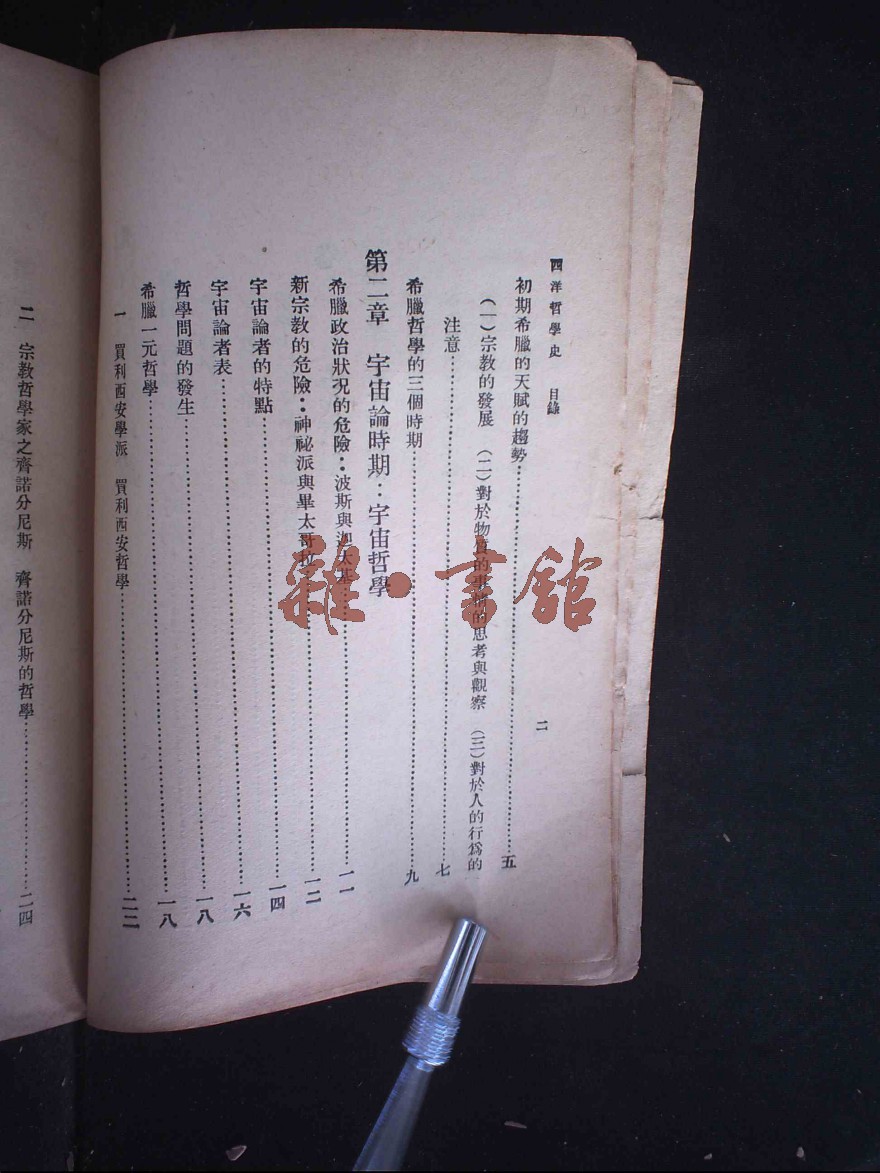 西洋哲學史 目錄
二
初期希臘的天賦的趨勢……五
(一)宗教的發展 (二)對於物質的事物的思考與觀察 (三)對於人的行為的
注意……七
希臘哲學的三個時期……九
第二章 宇宙論時期:宇宙哲學
希臘政治狀況的危險:波斯與迦太基……一一
新宗教的危險:神祕派與畢太哥拉……一二
宇宙論者的特點……一四
宇宙論者表……一六
哲學問題的發生……一八
希臘一元哲學……一八
一 買利西安學派 買利西安哲學……二二
二 宗教哲學家之齊諾分尼斯 齊諾分尼斯的哲學……二四
雜·書館